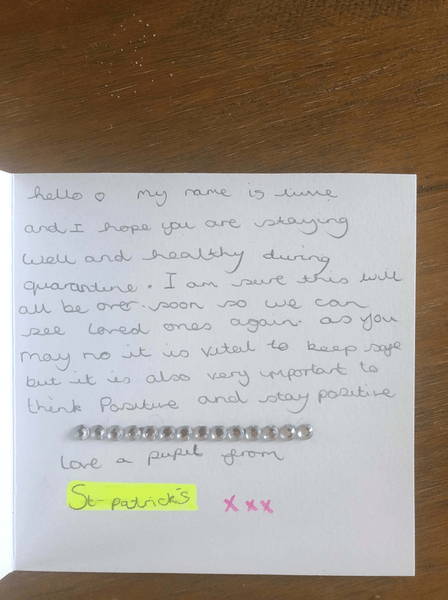 hello ♡ my name is
and I hope you are staying
well and healthy during
quarantine. I am sure this will
all be over soon so we can
see loved ones again. as you
may no it is vital to keep safe
but it is also very important to
think Positive and stay positive
love a pupil from
St-patrick's xxx